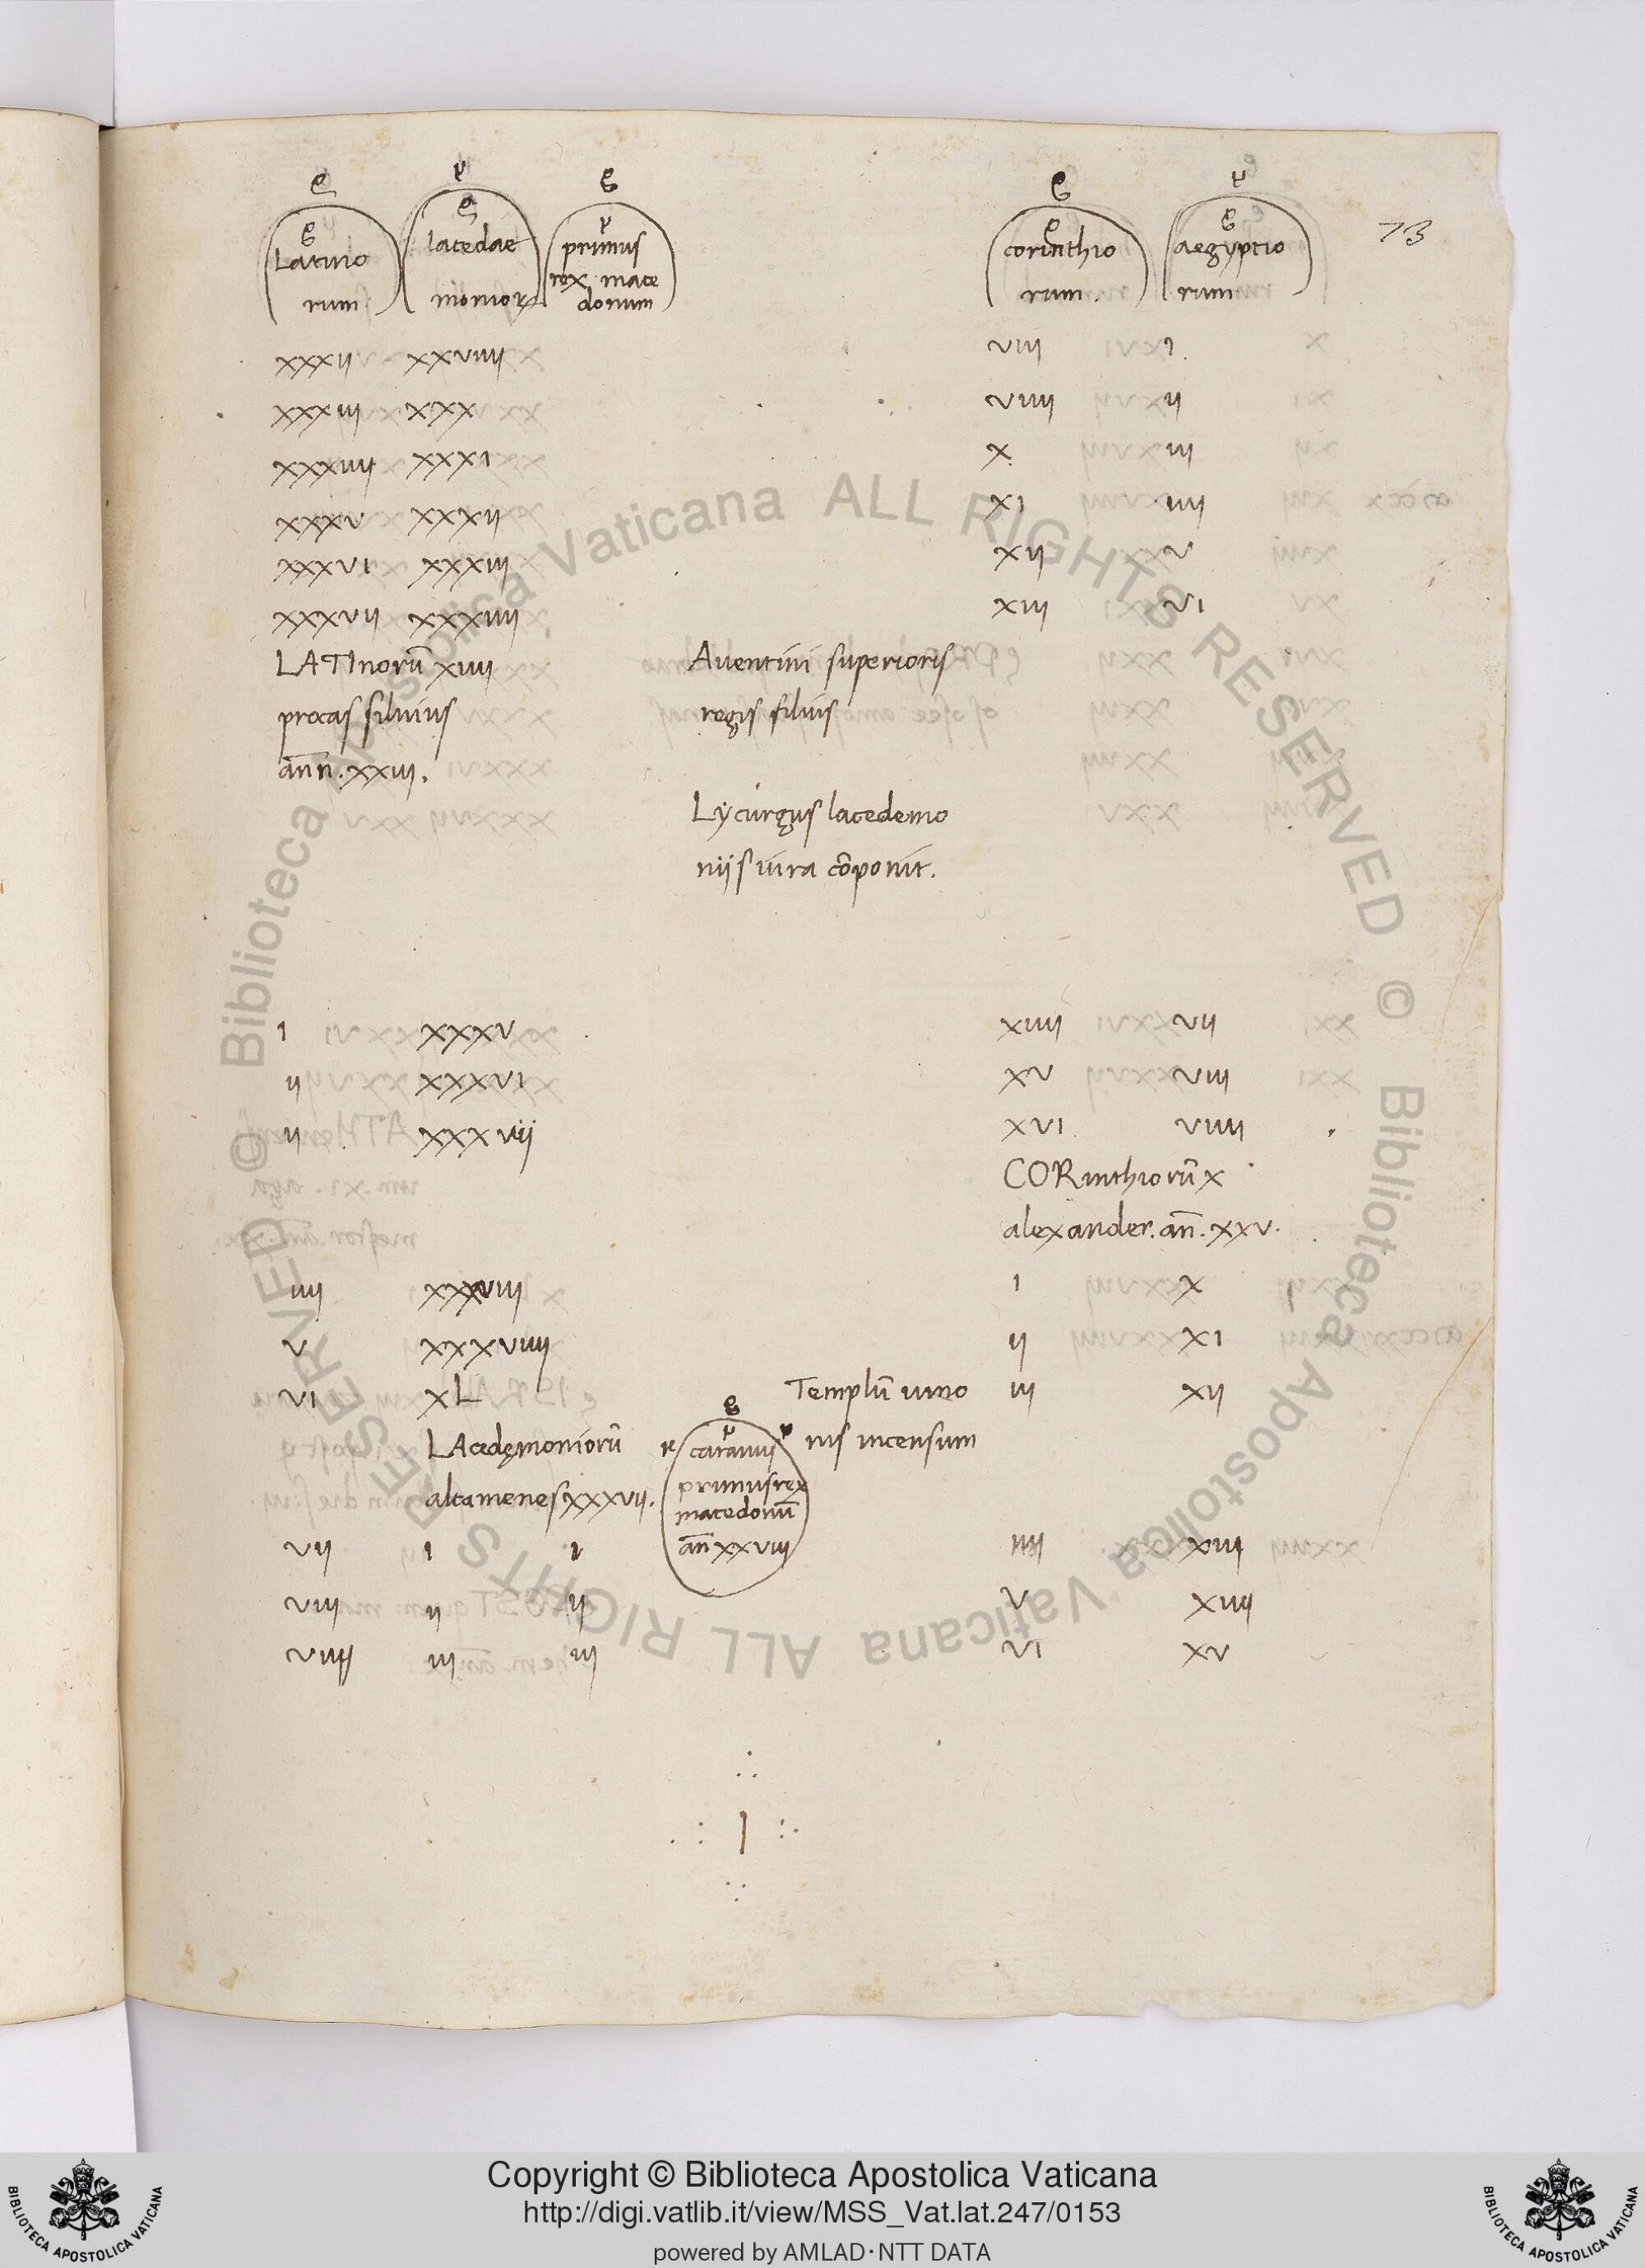 73
Latino
rum
lacedae
monioꝝ
primus
rex mace
donum
corinthio
rum
aegyptio
rum
xxxii xxviiii viii i
xxxiii xxx viiii ii
xxxiiii xxxi x iii
xxxv xxxii xi iiii
xxxvi xxxiii xii v
xxxvii xxxiiii xiii vi
LATInorū xiiii Auentini superioris
procas siluius regis filius
an̄n. xxiii.
Lycurgus lacedemo
niis iura cōponit.
i xxxv xiiii vii
ii xxxvi xv viii
ii xxxvii xvi viiii
CORinthiorū x
alexander. an̄. xxv.
iiii xxxviii i x
v xxxviiii ii xi
vi xL Templū iuno iii xii
LAcedęmoniorū nis incensum
altamenes xxxvii.
caranus
primus rex
macedonū
an̄ xxviii
vii i i iiii xiii
viii ii ii v xiiii
viiii iii iii vi xv
Biblioteca Apostolica Vaticana ALL RIGHTS RESERVED ©
Biblioteca Apostolica Vaticana ALL RIGHTS RESERVED ©
Copyright © Biblioteca Apostolica Vaticana
http://digi.vatlib.it/view/MSS_Vat.lat.247/0153
powered by AMLAD·NTT DATA
BIBLIOTECA APOSTOLICA VATICANA
BIBLIOTECA APOSTOLICA VATICANA